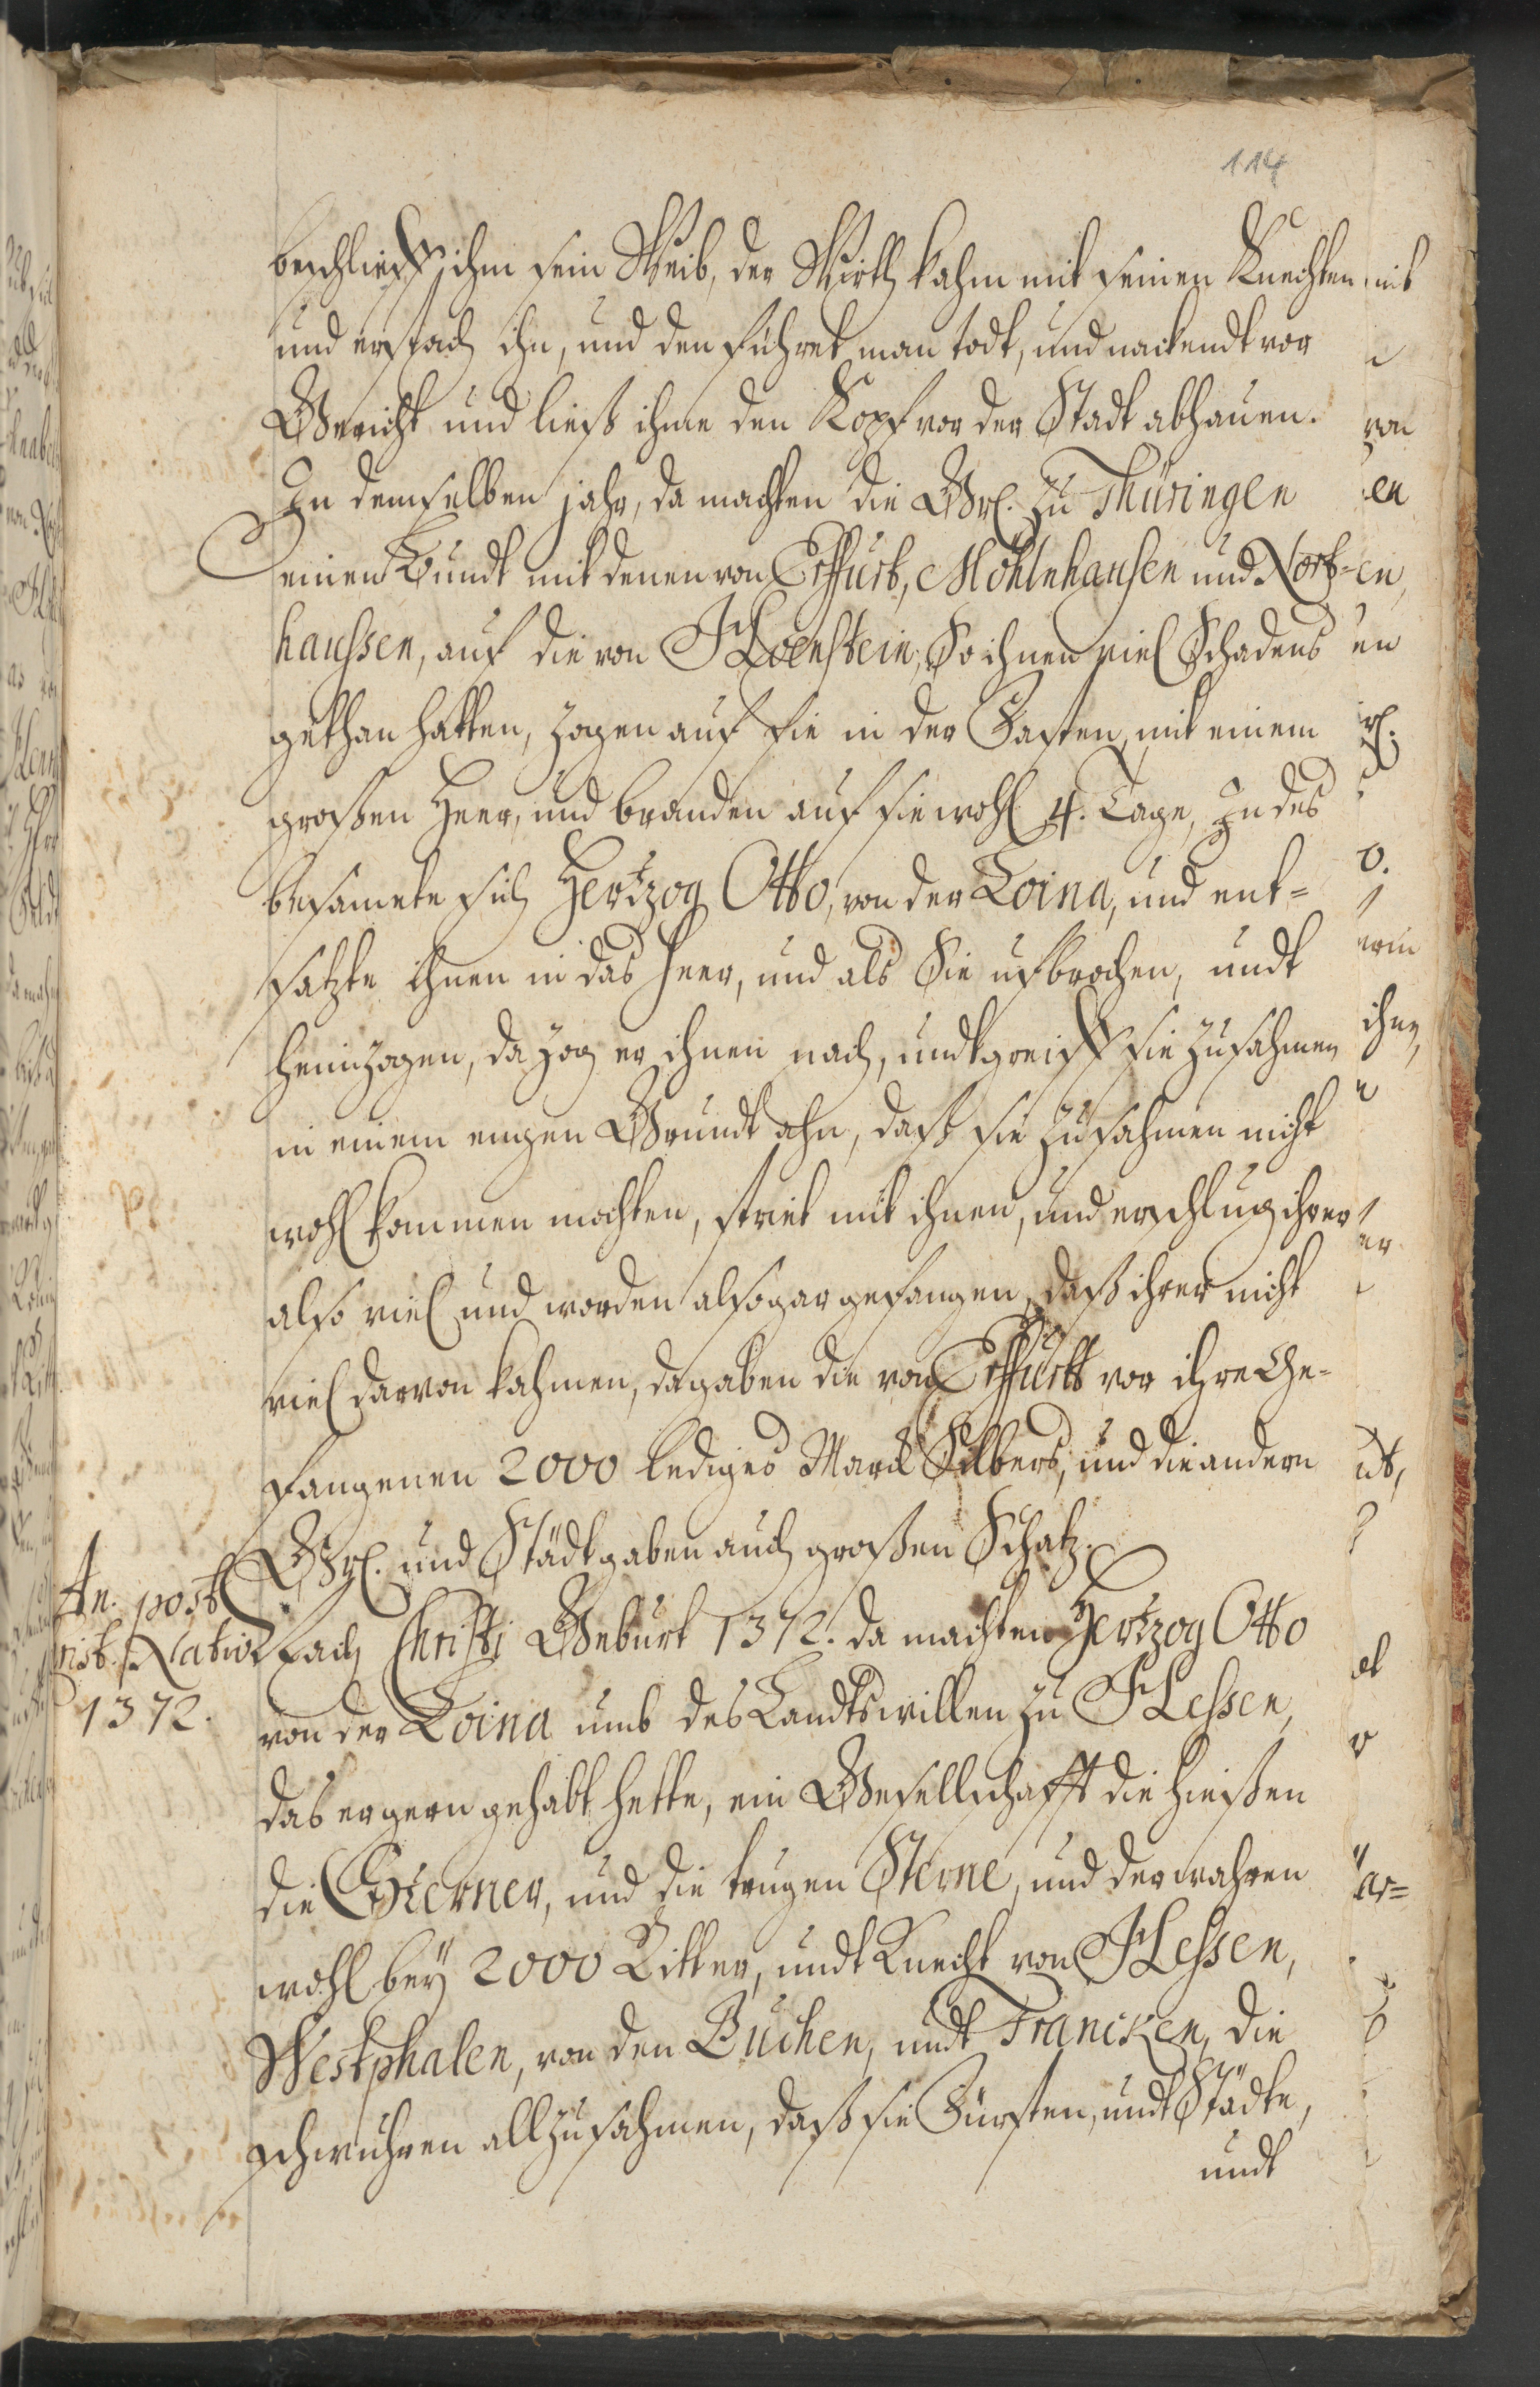 114
beschlieff ihm sein Weib, der Wirth kahm mit seinen Knechten
und erstach ihn, und den führet man todt, und nackendt vor
Gericht und ließ ihme den Kopf vor der Stadt abhauen.
In demselben jahr, da machten die Grl. zu Thüringen
einen Bundt mit denen von Erffurt, Mohlnhausen und Nort-
haussen, auf die von Hoenstein, So ihnen viel Schadens
gethan hatten, zogen auf sie in der Fasten, mit einem
großen Heer, und branden auf sie wohl 4. Tage, In des
besamete sich Hertzog Otto, von der Loina, und ent-
satzte ihnen in das Heer, und als Sie ufbrochen, undt
heimzogen, da zog er ihnen nach, undt greiff sie zusahmen
in einem engen Grundt ahn, daß sie zusahmen nicht
wohl kommen mochten, striet mit ihnen, und erschlug ihrer
also viel und worden also gar gefangen, daß ihrer nicht
viel darvon kahmen, da gaben die von Erffurtt vor ihre Ge-
fangenen 2000 lediges Marck Silbers, und die andern
Grl. und Städt gaben auch großen Schatz.
An. post
Christ. Nativ.
1372.
Nach Christi Geburt 1372. da machten Hertzog Otto
von der Loina umb des Landts willen zu Hessen,
das er gern gehabt hette, ein Gesellschafft die hießen
die Sterner, und die trugen Sterne, und der wahren
wohl bey 2000 Ritter, undt Knecht von Hessen,
Westphalen, von den Buchen, undt Francken, die
schwuhren all zusahmen, daß sie Fürsten, undt Städte,
undt